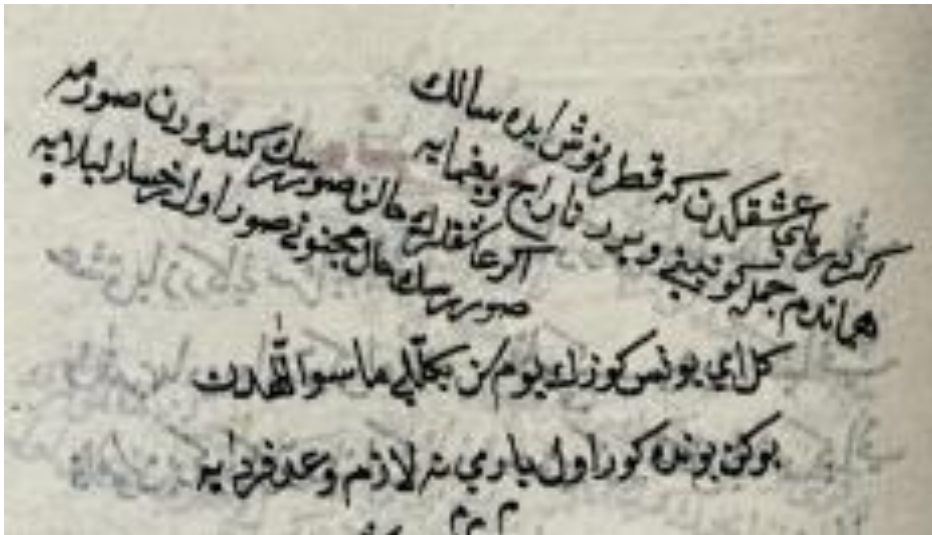 اكر درياي عشقكدن كه قطره نوش ايده سالك
هماندم جمله كونيني ويرر تاراج ويغمايه
اكر عاشقلرك حالن صوررسك كندودن صورمه
صوررسك حال مجنوني صور اول رخسار ليلايه
كل اي يونس كوزك يوم كن بكلّي ما سوا اللّهدن
بوكن بونده كور اول ياري نه لازم وعد فردايه
م م م